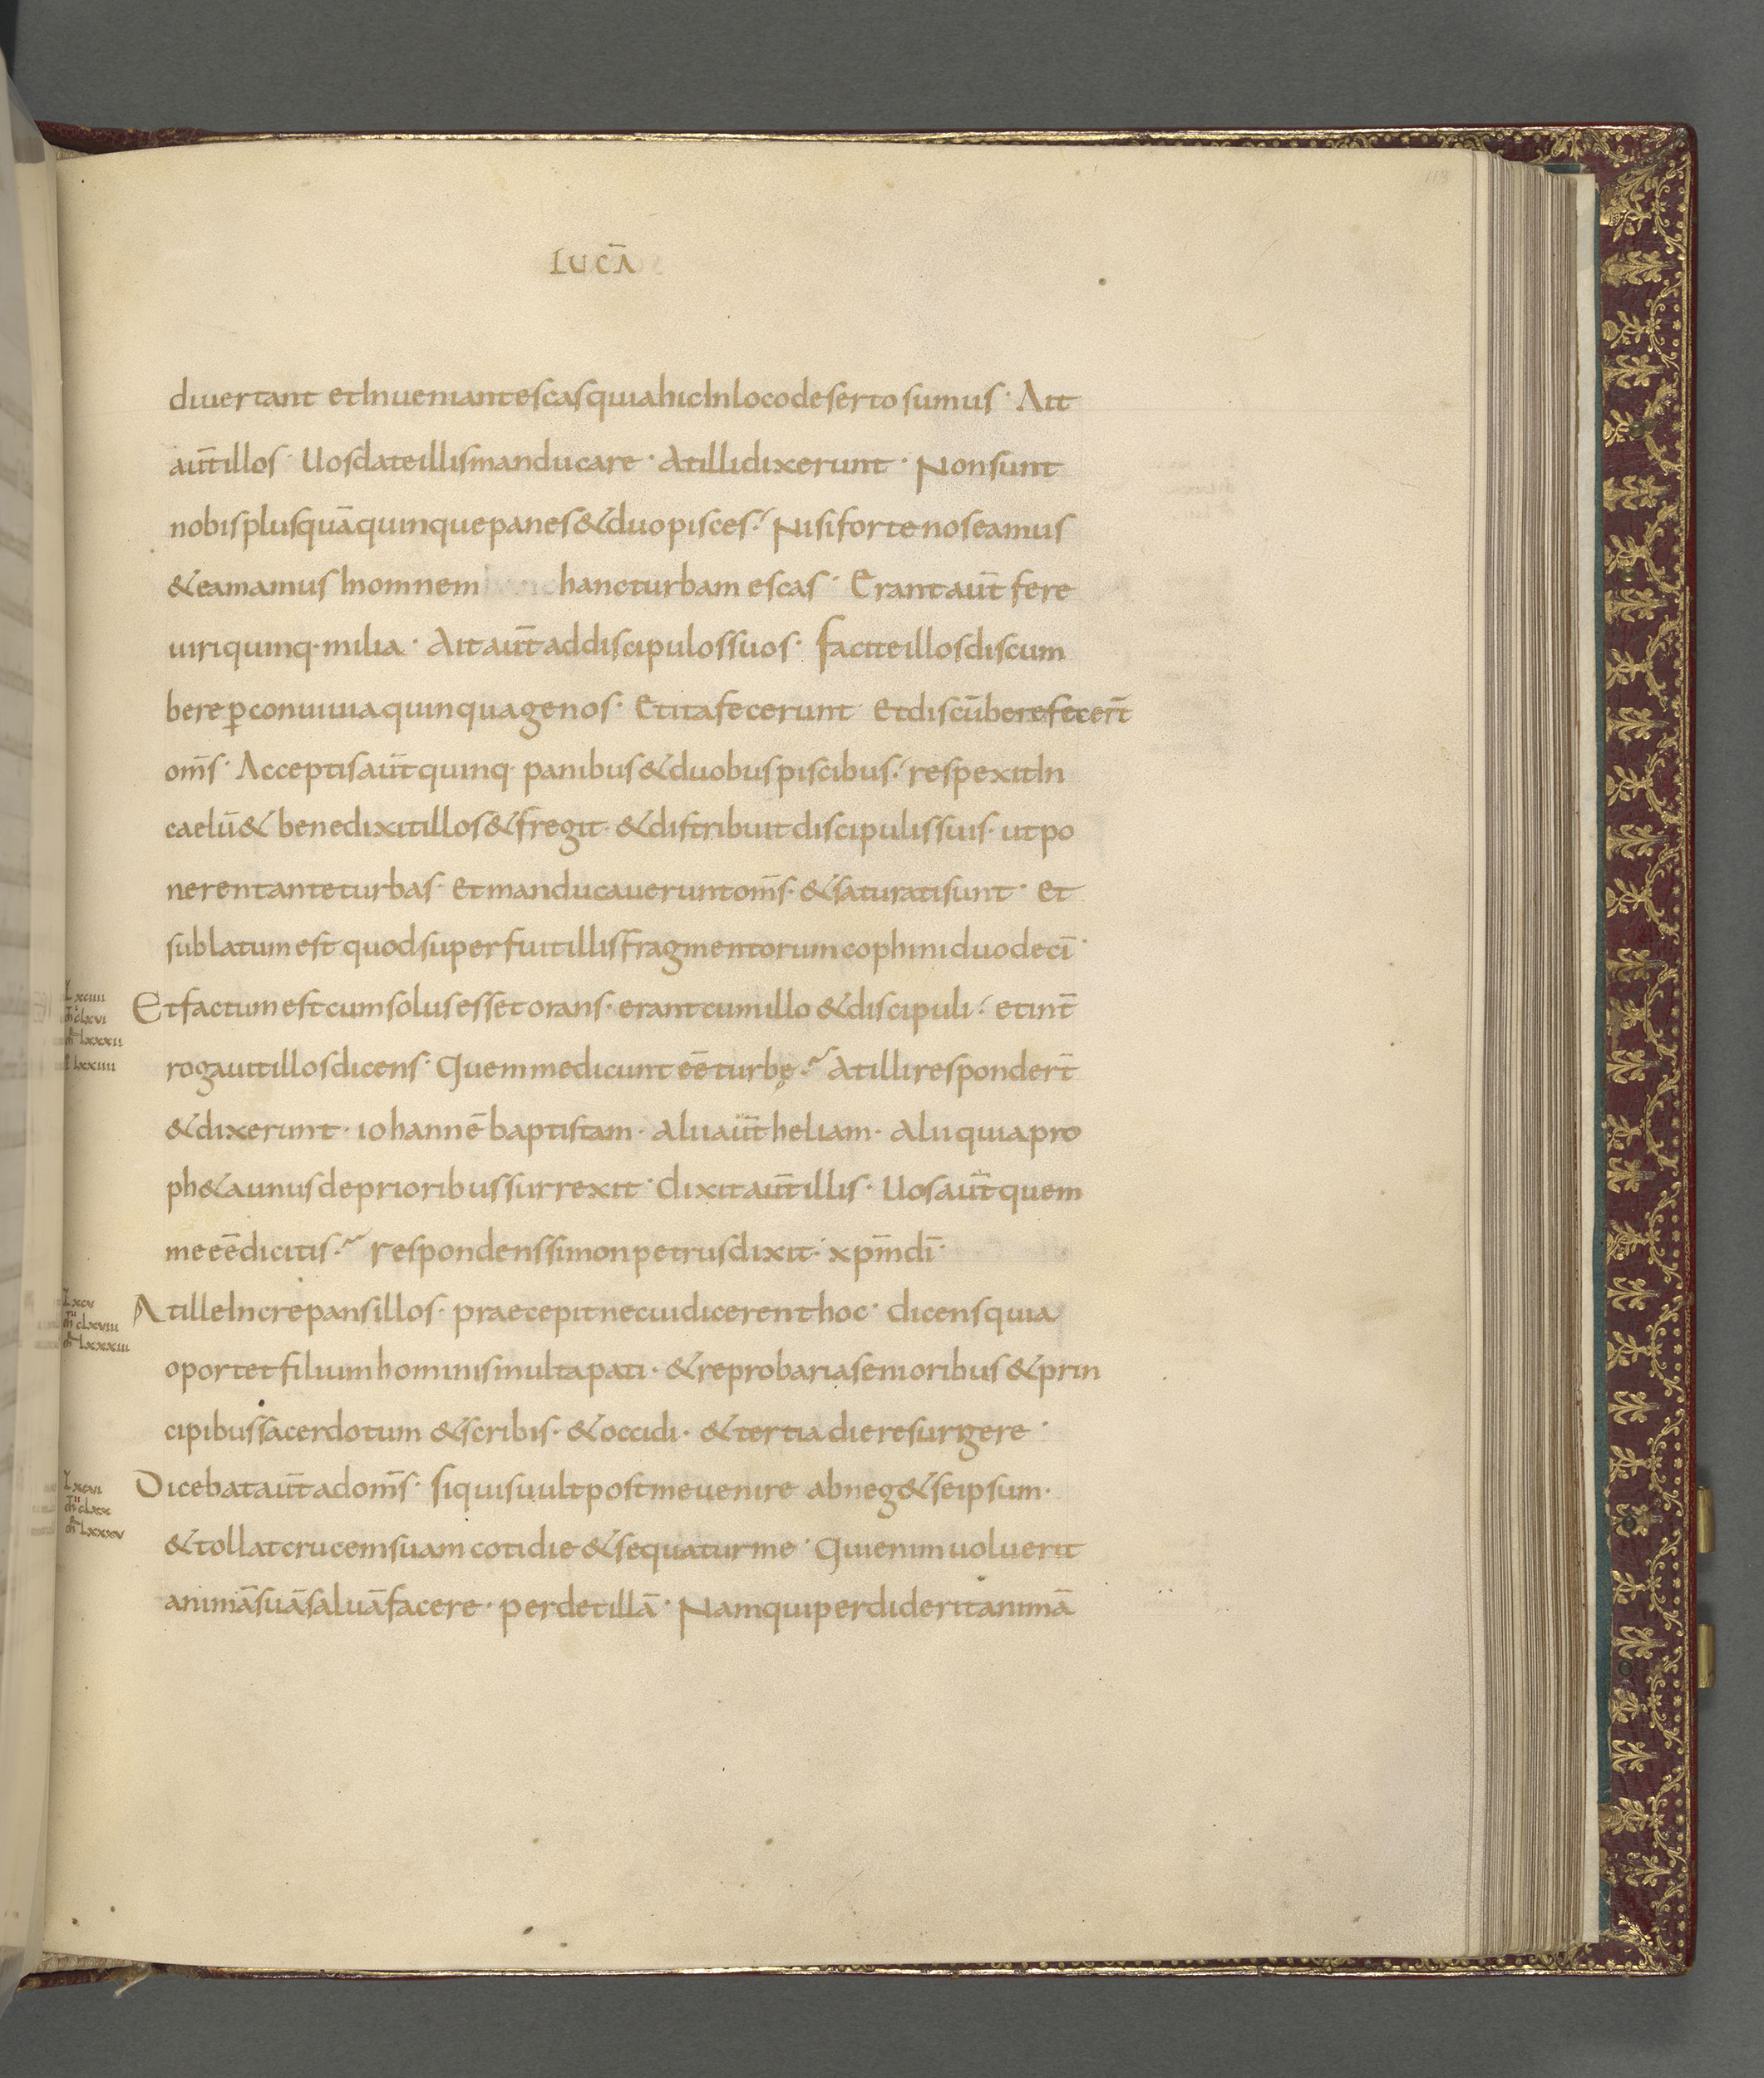 LUCĀ
113
diuertant et Inueniant escas quia hic In loco deserto sumus · Ait
aut̄ illos · Uos date illis manducare · At illi dixerunt · Non sunt
nobis plus quā quinque panes & duo pisces · Nisi forte nos eamus
& eamamus In omnem hanc turbam escas · Erant aut̄ fere
uiri quinq· milia · Ait aut̄ ad discipulos suos · facite illos discum
bere ꝑ conuiuia quinquagenos · Et ita fecerunt Et discūbere fecer̄t
om̄s · Acceptis aut̄ quinq· panibus & duobus piscibus · respexit In
caelū & benedixit illos & fregit · & distribuit discipulis suis · ut po
nerent ante turbas · Et manducauerunt om̄s · & saturati sunt · Et
sublatum est quod superfuit illis fragmentorum cophini duodecī ·
Et factum est cum solus esset orans · erant cum illo & discipuli · et int̄
rogauit illos dicens · Quem me dicunt eē turbę · At illi responder̄t
& dixerunt · iohannē baptistam · alii aut̄ heliam · alii quia pro
ph&a unus de prioribus surrexit · dixit aut̄ illis · Uos aut̄ quem
me eē dicitis · respondens simon petrus dixit · xp̄m dī ·
At ille Increpans illos · praecepit ne cui dicerent hoc · dicens quia
oportet filium hominis multa pati · & reprobari a senioribus & prin
cipibus sacerdotum & scribis · & occidi · & tertia die resurgere ·
Dicebat aut̄ ad om̄s · si quis uult post me uenire abneg& se ipsum ·
& tollat crucem suam cotidie & sequatur me · Qui enim uoluerit
animā suā saluā facere · perdet illā · Nam qui perdiderit animā